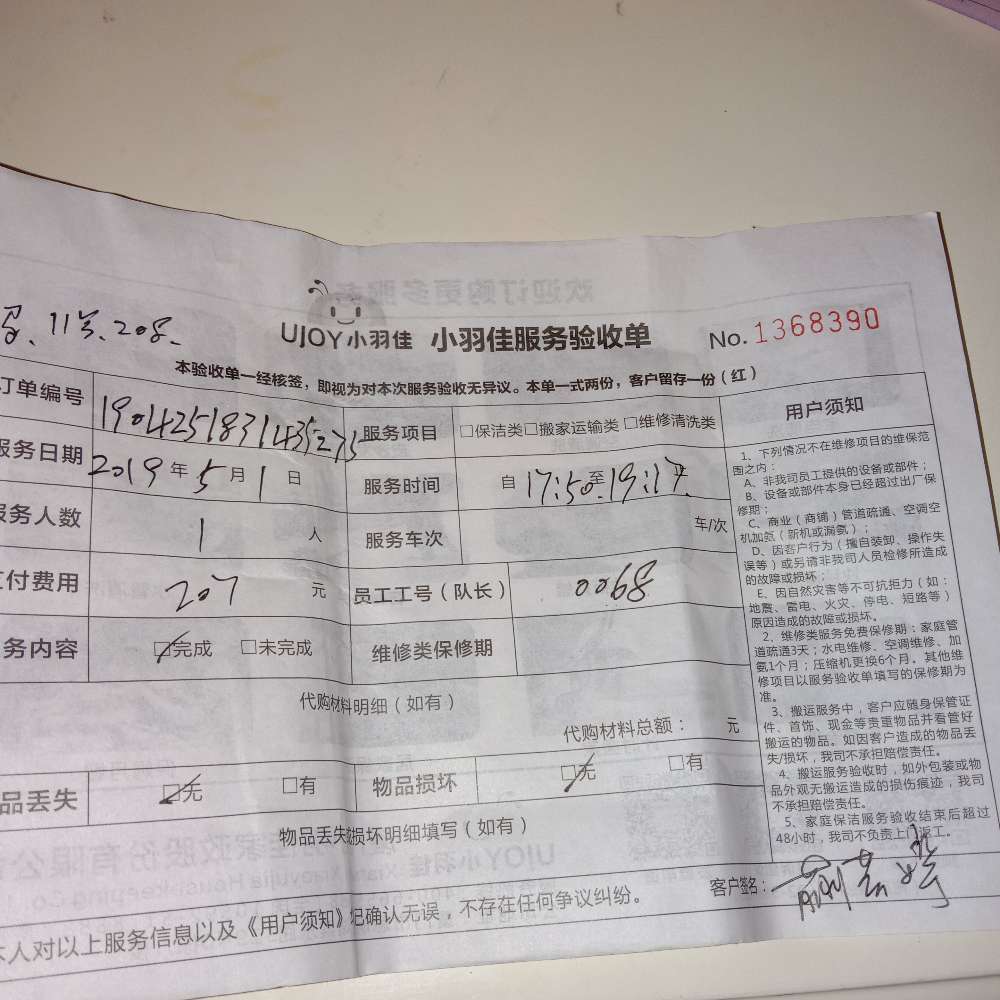 11号.208
UJOY小羽佳 小羽佳服务验收单 No.1368390
本验收单一经核签，即视为对本次服务验收无异议。本单一式两份，客户留存一份（红）
订单编号 190425183143527 服务项目 □保洁类□搬家运输类□维修清洗类
服务日期 2019年5月1日 服务时间 自17:50至19:17
服务人数 1人 服务车次 车/次
支付费用 207元 员工工号（队长） 0068
务内容 □完成 □未完成 维修类保修期
代购材料明细（如有）
代购材料总额： 元
品丢失 □无 □有 物品损坏 □无 □有
物品丢失损坏明细填写（如有）
本人对以上服务信息以及《用户须知》确认无误，不存在任何争议纠纷。
客户签名：
用户须知
1、下列情况不在维修项目的维保范
围之内：
A、非我司员工提供的设备或部件；
B、设备或部件本身已经超过出厂保
修期；
C、商业（商铺）管道疏通、空调空
机加氨（新机或漏氨）；
D、因客户行为（擅自装卸、操作失
误等）或另请非我司人员检修所造成
的故障或损坏；
E、因自然灾害等不可抗拒力（如：
地震、雷电、火灾、停电、短路等）
原因造成的故障或损坏。
2、维修类服务免费保修期：家庭管
道疏通3天；水电维修、空调维修、加
氨1个月；压缩机更换6个月。其他维
修项目以服务验收单填写的保修期为
准。
3、搬运服务中，客户应随身保管证
件、首饰、现金等贵重物品并看管好
搬运的物品。如因客户造成的物品丢
失/损坏，我司不承担赔偿责任。
4、搬运服务验收时，如外包装或物
品外观无搬运造成的损伤痕迹，我司
不承担赔偿责任。
5、家庭保洁服务验收结束后超过
48小时，我司不负责上门返工。